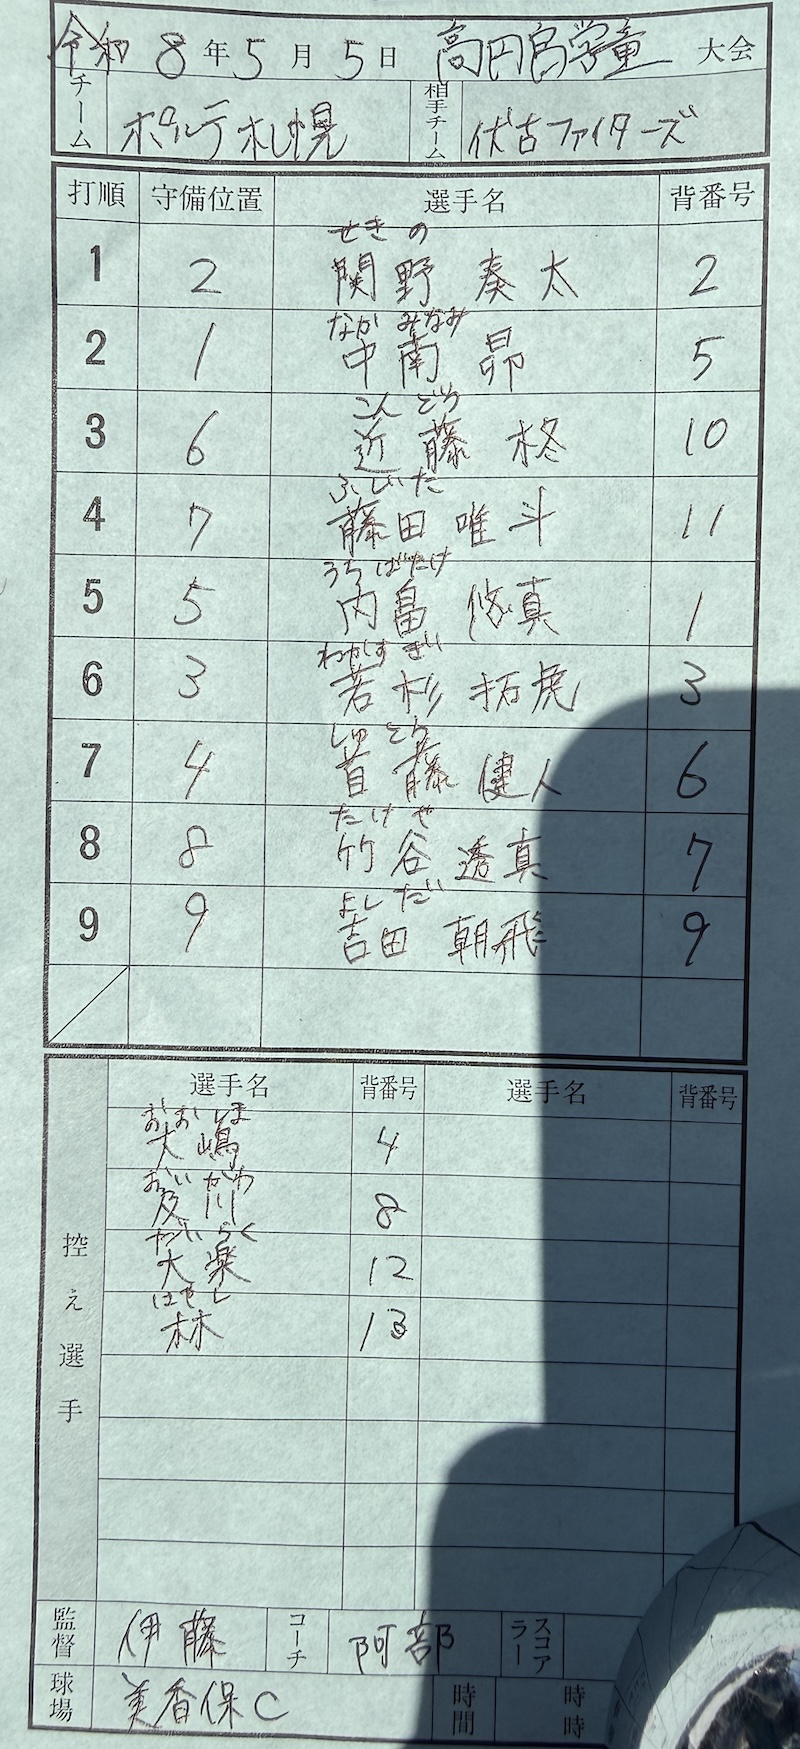 令和 8 年 5 月 5 日 高円宮学童 大会
チーム ポルテ札幌 相手チーム 伏古ファイターズ
打順 守備位置 選手名 背番号
せきの
1 2 関野 奏太 2
なか みなみ
2 1 中南 昴 5
こんどう
3 6 近藤 柊 10
ふじた
4 7 藤田 唯斗 11
うちばたけ
5 5 内畠 悠真 1
わかすぎ
6 3 若杉 拓虎 3
しゅとう
7 4 首藤 健人 6
たけや
8 8 竹谷 透真 7
よしだ
9 9 吉田 朝飛 9
控え選手
選手名 背番号 選手名 背番号
おおしま
大嶋 4
おいかわ
及川 8
だいらく
大楽 12
はやし
林 13
監督 伊藤 コーチ 阿部 スコアラー
球場 美香保C 時間 時
時